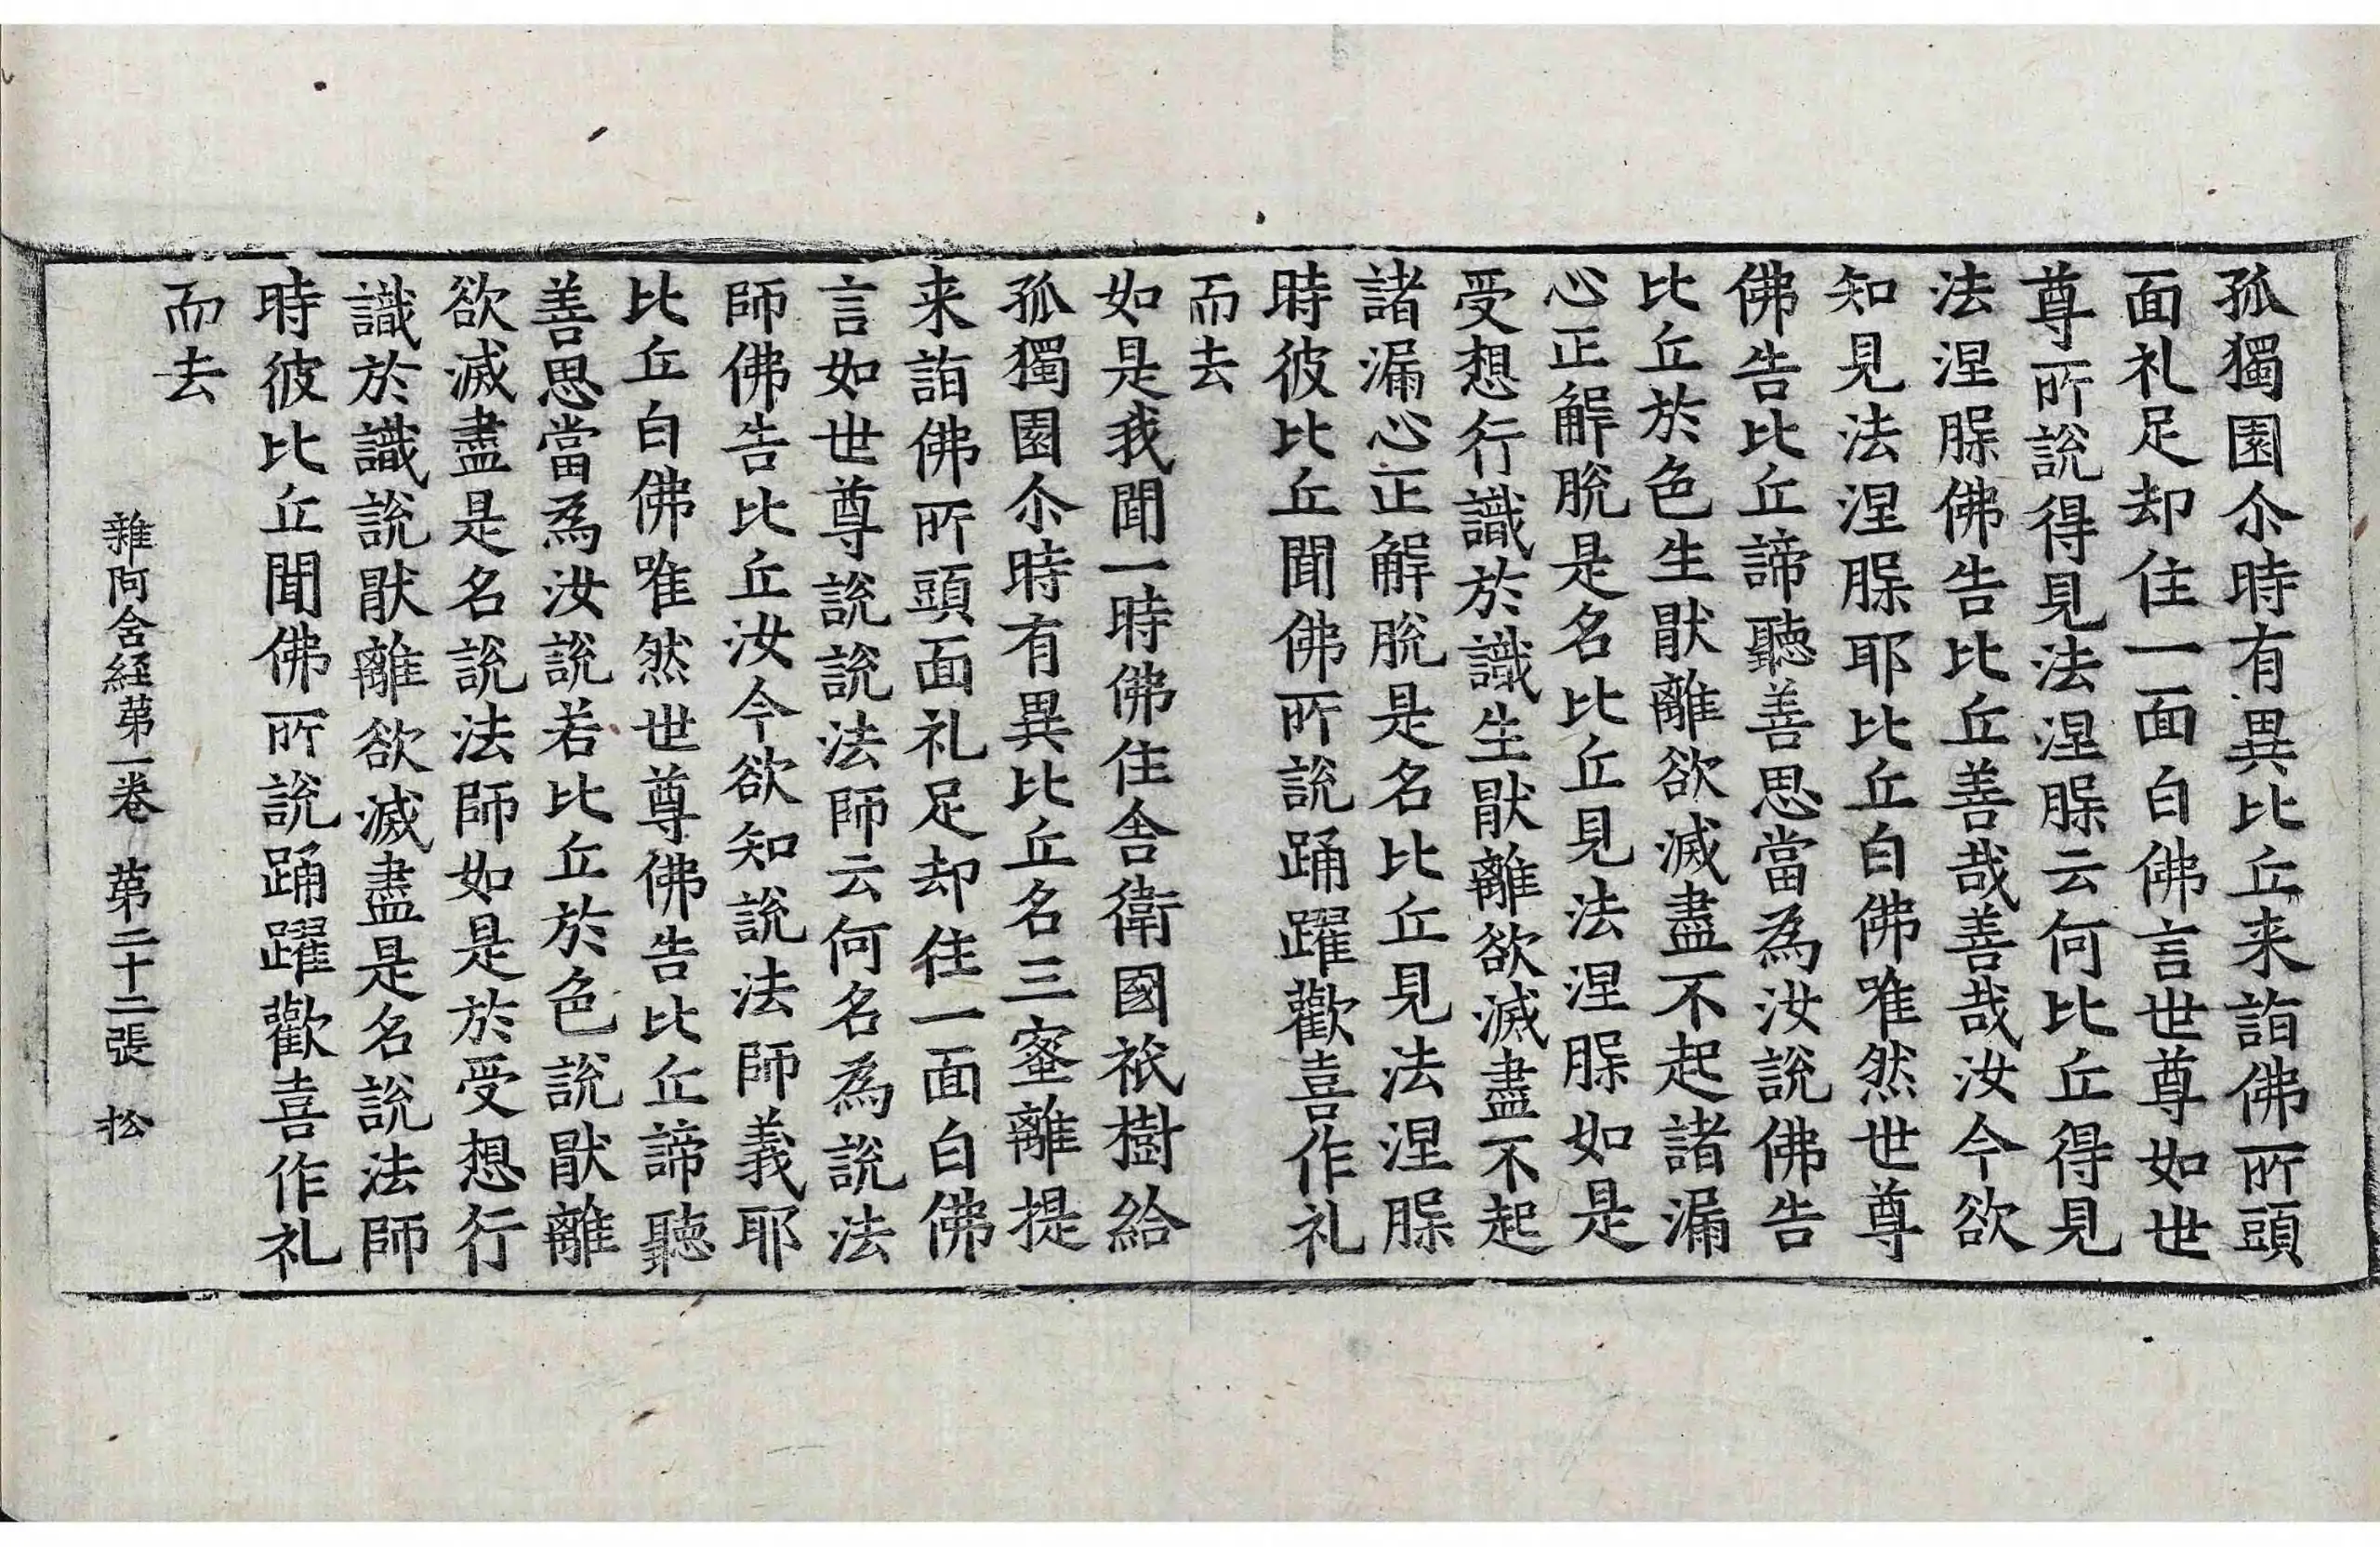 孤獨園尒時有異比丘来詣佛所頭
面礼足却住一面白佛言世尊如世
尊所說得見法涅槃云何比丘得見
法涅槃佛告比丘善哉善哉汝今欲
知見法涅槃耶比丘白佛唯然世尊
佛告比丘諦聽善思當為汝說佛告
比丘於色生猒離欲滅盡不起諸漏
心正解脫是名比丘見法涅槃如是
受想行識於識生猒離欲滅盡不起
諸漏心正解脫是名比丘見法涅槃
時彼比丘聞佛所說踊躍歡喜作礼
而去
如是我聞一時佛住舍衛國祇樹給
孤獨園尒時有異比丘名三蜜離提
来詣佛所頭面礼足却住一面白佛
言如世尊說說法師云何名為說法
師佛告比丘汝今欲知說法師義耶
比丘白佛唯然世尊佛告比丘諦聽
善思當為汝說若比丘於色說猒離
欲滅盡是名說法師如是於受想行
識於識說猒離欲滅盡是名說法師
時彼比丘聞佛所說踊躍歡喜作礼
而去
雜阿含経第一卷 第二十二張 松